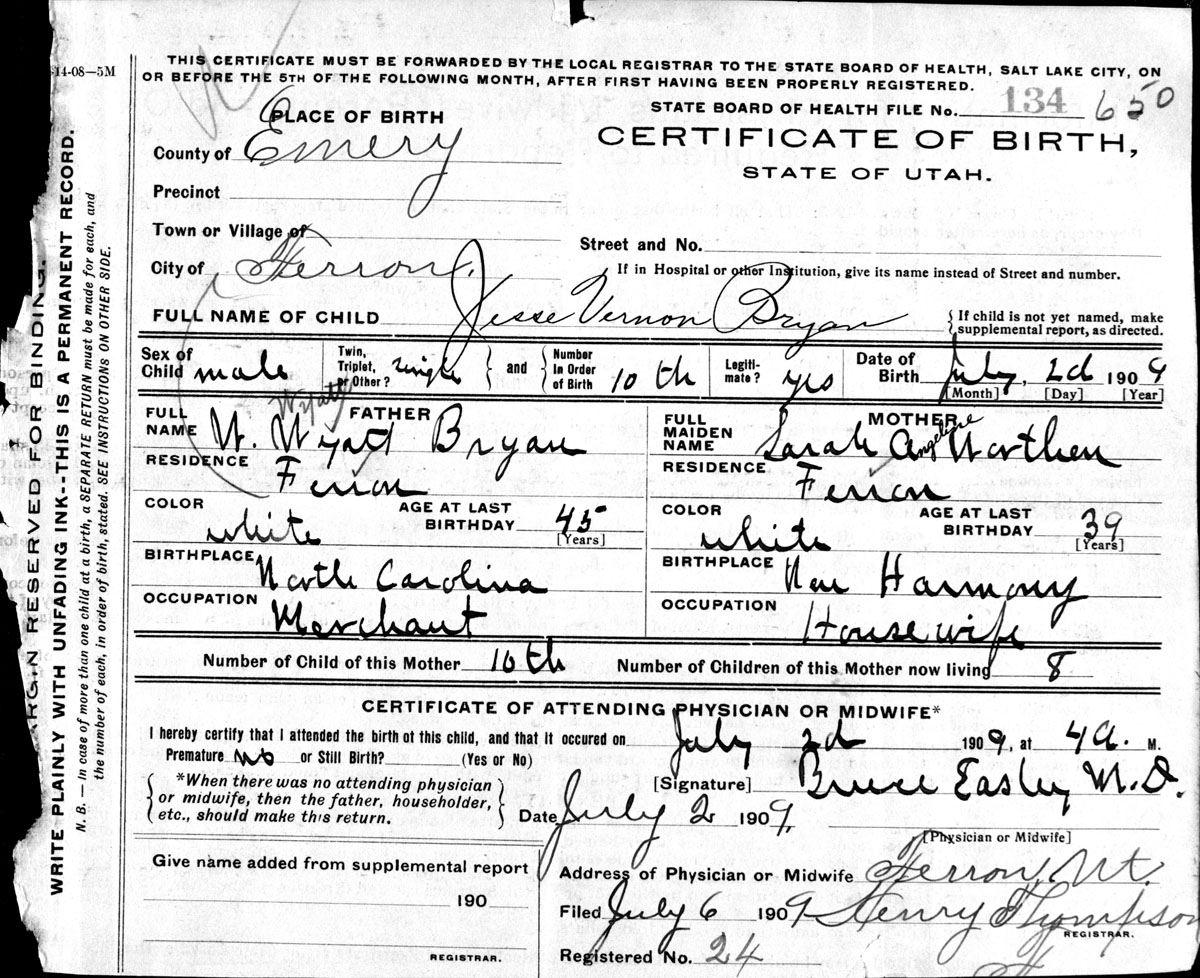 14-08—5M
THIS CERTIFICATE MUST BE FORWARDED BY THE LOCAL REGISTRAR TO THE STATE BOARD OF HEALTH, SALT LAKE CITY, ON
OR BEFORE THE 5TH OF THE FOLLOWING MONTH, AFTER FIRST HAVING BEEN PROPERLY REGISTERED.
STATE BOARD OF HEALTH FILE No. 134 650
PLACE OF BIRTH
CERTIFICATE OF BIRTH,
County of Emery
STATE OF UTAH.
Precinct
Town or Village of
Street and No.
City of Ferron.
If in Hospital or other Institution, give its name instead of Street and number.
FULL NAME OF CHILD Jesse Vernon Bryan { If child is not yet named, make supplemental report, as directed.
Sex of Child male Twin, Triplet, or Other? single } and { Number In Order of Birth 10 th Legiti- mate? yes Date of Birth July, 2d 1909
[Month] [Day] [Year]
FATHER
MOTHER
FULL NAME W. Wyatt Bryan Wyatt
FULL MAIDEN NAME Sarah Angeline Worthen
RESIDENCE Ferron
RESIDENCE Ferron
COLOR white AGE AT LAST BIRTHDAY 45 [Years]
COLOR white AGE AT LAST BIRTHDAY 39 [Years]
BIRTHPLACE North Carolina
BIRTHPLACE New Harmony
OCCUPATION Merchant
OCCUPATION Housewife
Number of Child of this Mother 10th Number of Children of this Mother now living 8
CERTIFICATE OF ATTENDING PHYSICIAN OR MIDWIFE*
I hereby certify that I attended the birth of this child, and that it occured on July 2d 1909, at 4 a. M.
Premature No or Still Birth? (Yes or No)
{ *When there was no attending physician
or midwife, then the father, householder,
etc., should make this return. }
[Signature] Bruce Easley M.D.
Date July 2 1909,
[Physician or Midwife]
Give name added from supplemental report
190
REGISTRAR.
Address of Physician or Midwife Ferron, Ut.
Filed July 6 1909 Henry Thompson
REGISTRAR.
Registered No. 24
MARGIN RESERVED FOR BINDING.
WRITE PLAINLY WITH UNFADING INK--THIS IS A PERMANENT RECORD.
N. B. — In case of more than one child at a birth, a SEPARATE RETURN must be made for each, and
the number of each, in order of birth, stated. SEE INSTRUCTIONS ON OTHER SIDE.